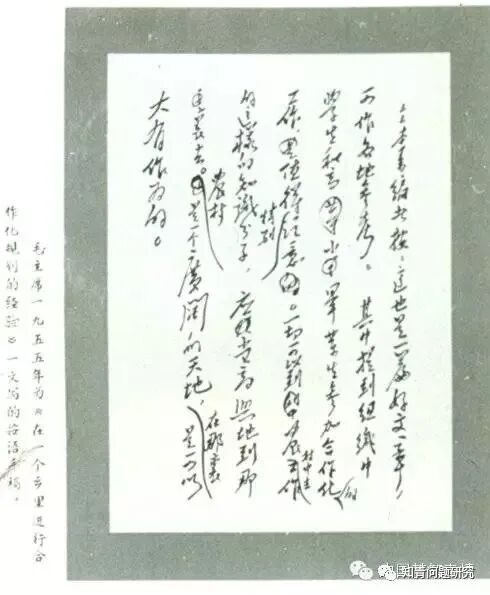 這也是一篇好文章，
可作各地參考。其中提到組織中
學生和高小畢業生參加合作化的
工作，值得特别注意。一切可以到農村中去工作
的這樣的知識分子，應當高興地到那
裏去。農村是一个廣闊的天地，在那裏是可以
大有作为的。
毛主席一九五五年为《在一个乡里进行合
作化规划的经验》一文写的按语手稿。
知青问题研究